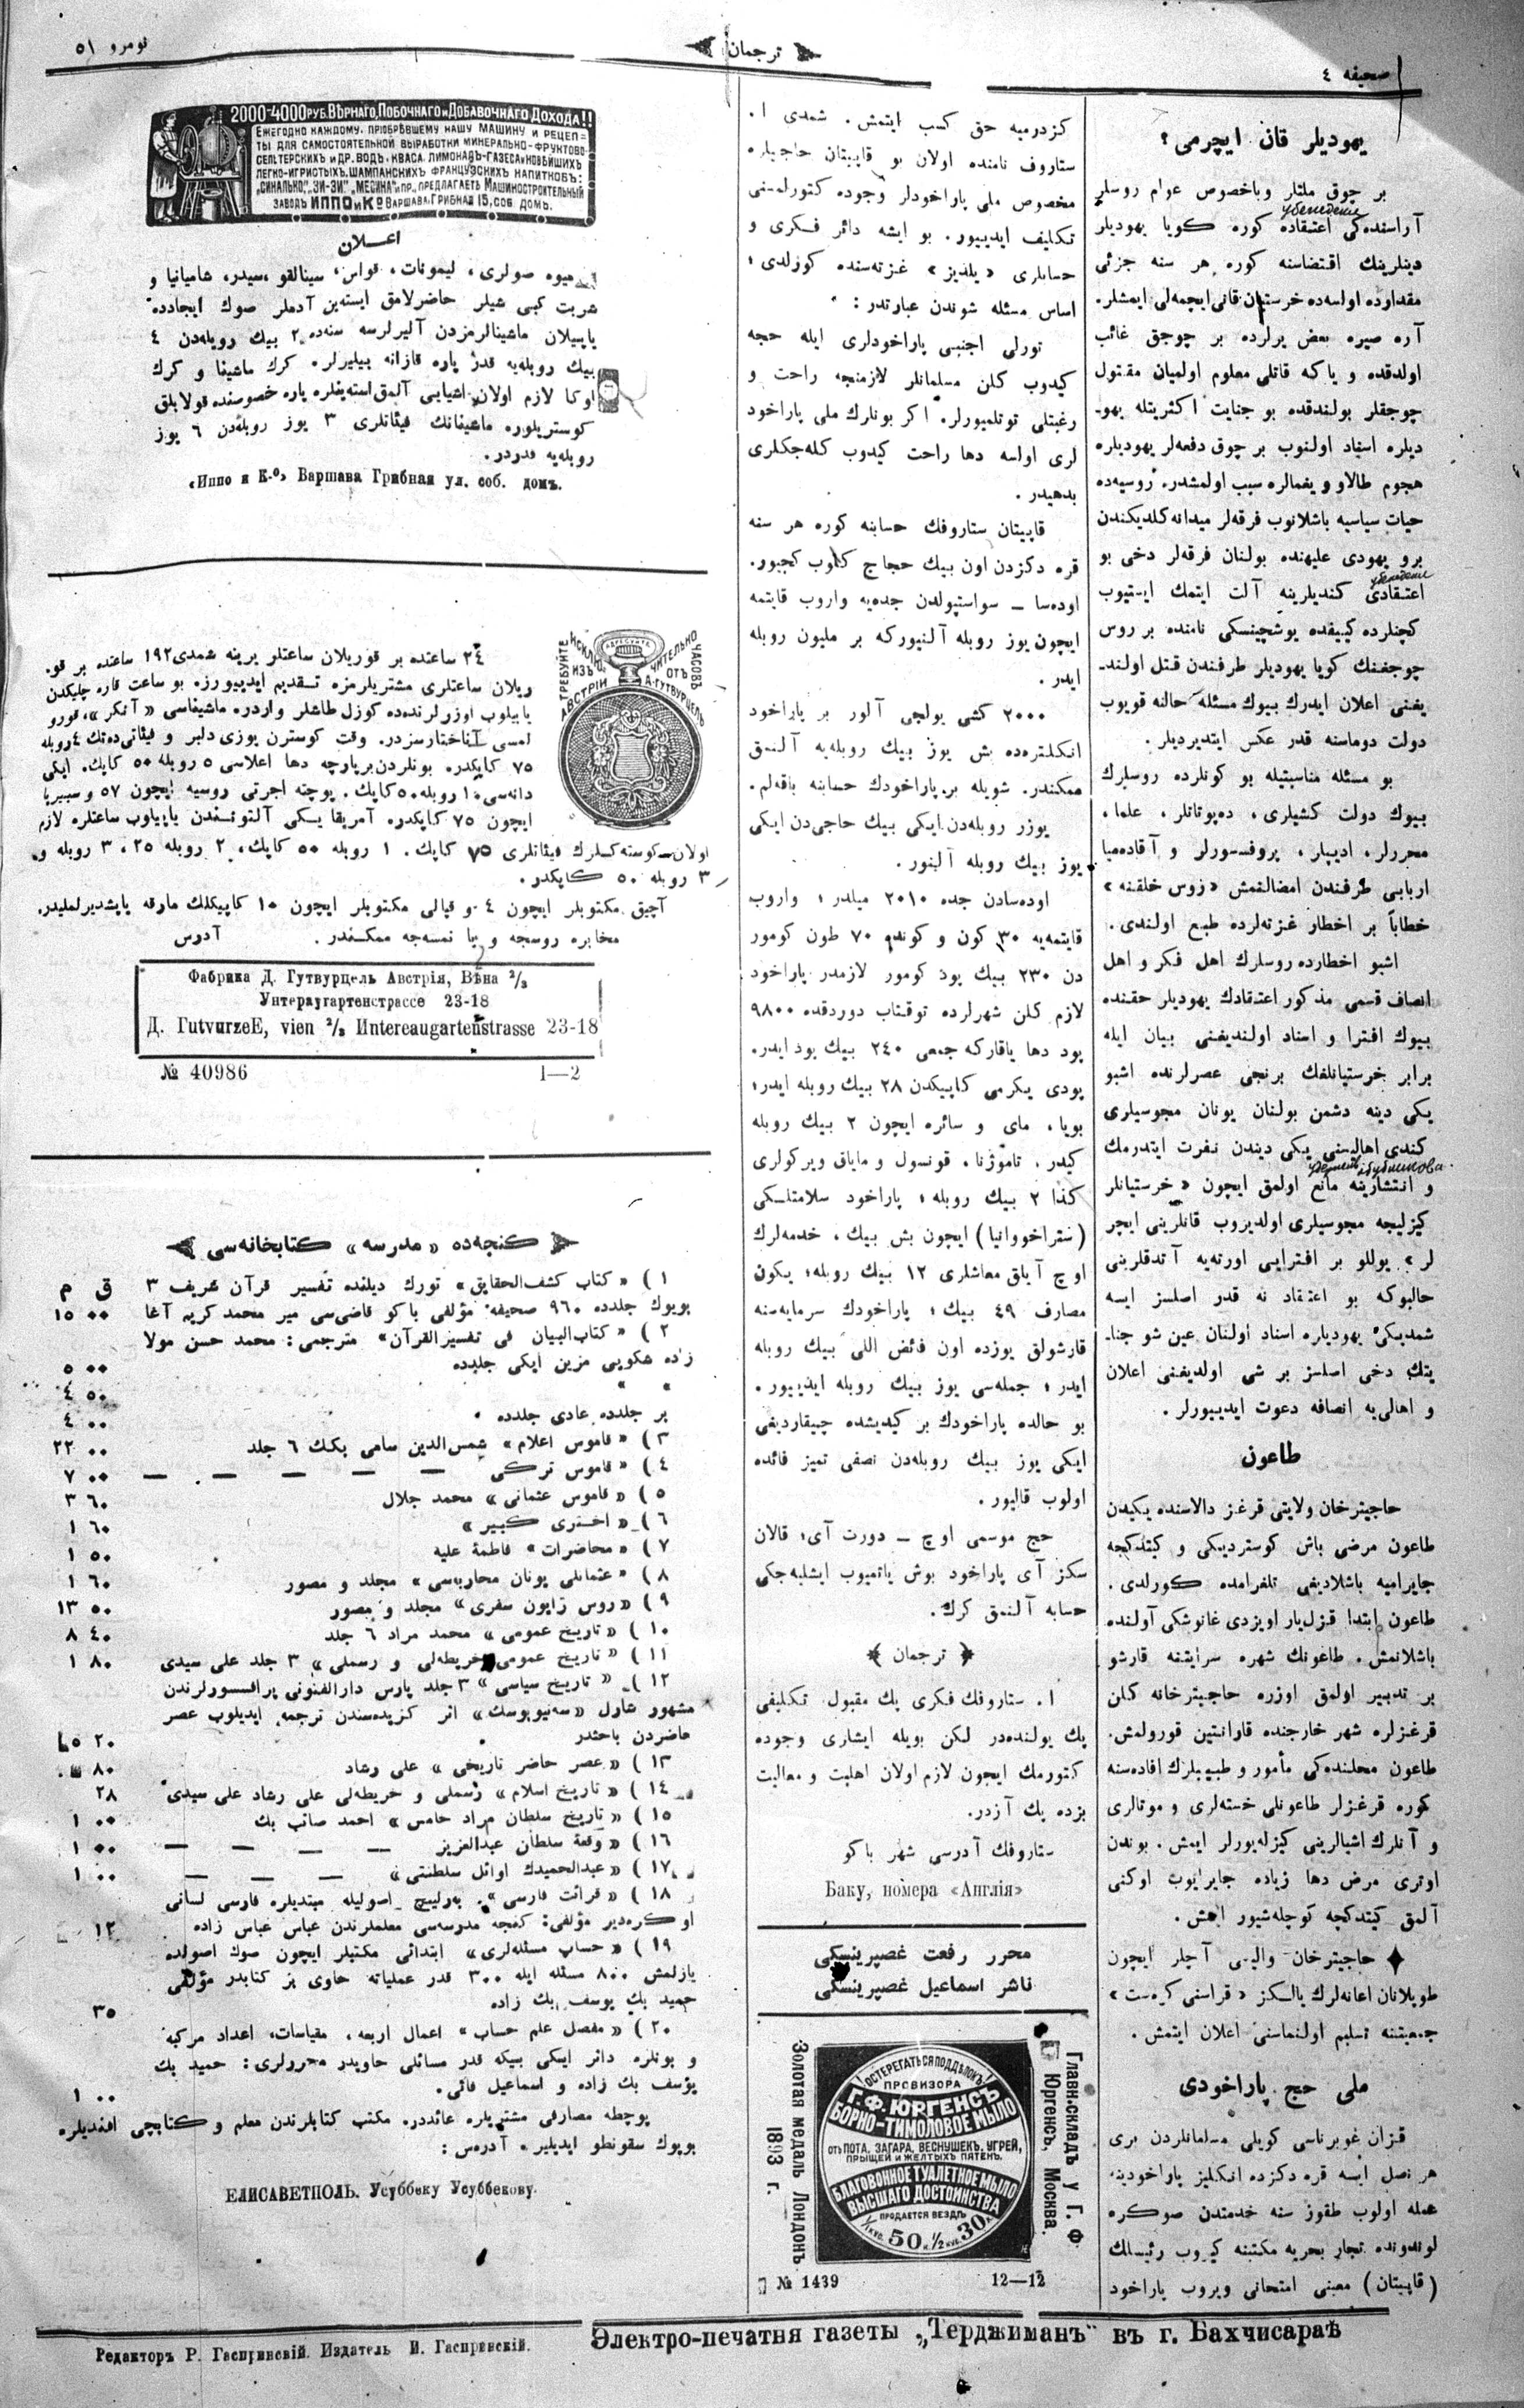 صحیفه ٤
ترجمان
نومرو ٥١
یهودیلر قان ایچرمی؟
بر چوق ملتلر وباخصوص عوام روسلر
آراسنده‌کی اعتقاده کوره کویا یهودیلر
دینلرینك اقتضاسنه کوره هر سنه جزئی
مقداوده اولسه‌ده خرستیان قانی ایچمه‌لی ایمشلر.
آره صیره بعض یرلرده بر چوجق غائب
اولدقده و یاکه قاتلی معلوم اولمیان مقتول
چوجقلر بولندقده بو جنایت اکثریتله یهو۔
دیلره اسناد اولنوب بر چوق دفعه‌لر یهودیلره
هجوم طالاو و یغمالره سبب اولمشدر. روسیه‌ده
حیات سیاسیه باشلانوب فرقه‌لر میدانه کلدیکندن
برو یهودی علیهنده بولنان فرقه‌لر دخی بو
اعتقادی کندیلرینه آلت ایتمك ایستیوب
کچنلرده کییفده یوشچینسکی نامنده بر روس
چوجغنك کویا یهودیلر طرفندن قتل اولند۔
یغنی اعلان ایدرك بیوك مسئله حالنه قویوب
دولت دوماسنه قدر عکس ایتدیردیلر.
بو مسئله مناسبتیله بو کونلرده روسلرك
بیوك دولت کشیلری، ده‌پوتاتلر، علما،
محررلر، ادیبلر، پروفسورلر و آقاده‌میا
اربابی طرفندن امضالنمش «روس خلقنه»
خطاباً بر اخطار غزته‌لرده طبع اولندی.
اشبو اخطارده روسلرك اهل فکر و اهل
انصاف قسمی مذکور اعتقادك یهودیلر حقنده
بیوك افترا و اسناد اولندیغنی بیان ایله
برابر خرستیانلغك برنجی عصرلرنده اشبو
یکی دینه دشمن بولنان یونان مجوسیلری
کندی اهالیسنی یکی دیندن نفرت ایتدرمك
و انتشارینه مانع اولمق ایچون «خرستیانلر
کیزلیجه مجوسیلری اولدیروب قانلرینی ایچر
لر» یوللو بر افترایی اورته‌یه آتدقلرینی
حالبوکه بو اعتقاد نه قدر اصلسز ایسه
شمدیکی یهودیلره اسناد اولنان عین شو جنا۔
یتك دخی اصلسز بر شی اولدیغنی اعلان
و اهالی‌یه انصافه دعوت ایدییورلر.
طاعون
حاجیترخان ولایتی قرغز دالاسنده یکیدن
طاعون مرضی باش کوستردیکی و کیتدکجه
جایرامیه باشلادیغی تلغرامده کورلدی.
طاعون ابتدا قزل‌یار اویزدی غانوشکی آولنده
باشلانمش. طاعونك شهره سرایتنه قارشو
بر تدبیر اولمق اوزره حاجیترخانه کلن
قرغزلره شهر خارجنده قارانتین قورولمش.
طاعون محلنده‌کی مأمور و طبیبلرك افاده‌سنه
کوره قرغزلر طاعونلی خسته‌لری و موتالری
و آنلرك اشیالرینی کیزله‌یورلر ایمش. بوندن
اوتری مرض دها زیاده جایرایوب اوکنی
آلمق کیتدکچه کوچله‌شیور ایمش.
حاجیترخان والیسی آچلر ایچون
طوپلانان اعانه‌لرك یالکز «قراسنی کره‌ست»
جمعیتنه تسلیم اولنماسنی اعلان ایتمش.
ملی حج پاراخودی
قزان غوبرناسی کویلی مسلمانلردن بری
هر نصل ایسه قره دکزده انکلیز پاراخودینه
عمله اولوب طقوز سنه خدمتدن صوکره
لوندونده تجار بحریه مکتبنه کیروب رئیسلك
(قاپیتان) معینی امتحانی ویروب پاراخود
کزدرمیه حق کسب ایتمش. شمدی ا.
ستاروف نامنده اولان بو قاپیتان حاجیلره
مخصوص ملی پاراخودلر وجوده کتورلمسنی
تکلیف ایدییور. بو ایشه دائر فکری و
حسابلری «یلدیز» غزته‌سنده کوزلدی؛
اساس مسئله شوندن عبارتدر:
تورلی اجنبی پاراخودلری ایله حجه
کیدوب کلن مسلمانلر لازمنجه راحت و
رغبتلی توتلمیورلر. اکر بونلرك ملی پاراخود
لری اولسه دها راحت کیدوب کله‌جکلری
بدهیدر.
قاپیتان ستاروفك حسابنه کوره هر سنه
قره دکزدن اون بیك حجاج کلوب کچیور.
اوده‌سا ـ سواستپولدن جده‌یه واروب قایتمه
ایچون یوز روبله آلنیورکه بر ملیون روبله
ایدر.
٢٠٠٠ کشی یولجی آلور بر پاراخود
انکلتره‌ده بش یوز بیك روبله‌یه آلنمق
ممکندر. شویله بر پاراخودك حسابنه باقه‌لم.
یوزر روبله‌دن ایکی بیك حاجی‌دن ایکی
یوز بیك روبله آلنور.
اوده‌سادن جده ٢٠١٠ میلدر؛ واروب
قایتمه‌یه ٣٠ کون و کونده ٧٠ طون کومور
دن ٢٣٠ بیك پود کومور لازمدر پاراخود
لازم کلن شهرلرده توقتاب دوردقده ٩٨٠٠
پود دها یاقارکه جمعی ٢٤٠ بیك پود ایدر.
پودی یکرمی کاپیکدن ٢٨ بیك روبله ایدر؛
بویا، مای و سائره ایچون ٢ بیك روبله
کیدر. تاموژنا، قونسول و مایاق ویرکولری
کذا ٢ بیك روبله؛ پاراخود سلامتلکی
(ستراخووانیا) ایچون بش بیك، خدمه‌لرك
اوچ آیلق معاشلری ١٢ بیك روبله؛ یکون
مصارف ٤٩ بیك؛ پاراخودك سرمایه‌سنه
قارشولق یوزده اون فائض اللی بیك روبله
ایدر؛ جمله‌سی یوز بیك روبله ایدییور.
بو حالده پاراخودك بر کیدیشده چیقاردیغی
ایکی یوز بیك روبله‌دن نصفی تمیز فائده
اولوب قالیور.
حج موسمی اوچ ـ دورت آی؛ قالان
سکز آی پاراخود بوش یاتمیوب ایشلیه‌جکی
حسابه آلنمق کرك.
﴿ ترجمان ﴾
ا. ستاروفك فکری پك مقبول تکلیفی
پك یولنده‌در لکن بویله ایشلری وجوده
کتورمك ایچون لازم اولان اهلیت و معالیت
بزده پك آزدر.
ستاروفك آدرسی شهر باکو
Баку, номера «Англія»
محرر رفعت غصپرینسکی
ناشر اسماعیل غصپرینسکی
Главн. складъ у Г. Ф. Юргенсъ, Москва.
ОСТЕРЕГАТЬСЯ ПОДДѢЛОКЪ!
ПРОВИЗОРА
Г. Ф. ЮРГЕНСЪ
БОРНО-ТИМОЛОВОЕ МЫЛО
отъ ПОТА, ЗАГАРА, ВЕСНУШЕКЪ, УГРЕЙ,
ПРЫЩЕЙ и ЖЕЛТЫХЪ ПЯТЕНЪ.
БЛАГОВОННОЕ ТУАЛЕТНОЕ МЫЛО
ВЫСШАГО ДОСТОИНСТВА
ПРОДАЕТСЯ ВЕЗДѢ
1/1 кус. 50 к. 1/2 кус. 30 к.
Золотая медаль Лондонъ 1893 г.
№ 1439 12—12
2000-4000 РУБ. ВѢРНАГО, ПОБОЧНАГО и ДОБАВОЧНАГО ДОХОДА!!
ЕЖЕГОДНО КАЖДОМУ, ПРІОБРѢВШЕМУ НАШУ МАШИНУ И РЕЦЕП=
ТЫ ДЛЯ САМОСТОЯТЕЛЬНОЙ ВЫРАБОТКИ МИНЕРАЛЬНО-ФРУКТОВО
СЕЛЬТЕРСКИХЪ и ДР. ВОДЪ, КВАСА, ЛИМОНАДЪ-ГАЗЕСА и НОВѢЙШИХЪ
ЛЕГКО-ИГРИСТЫХЪ, ШАМПАНСКИХЪ ФРАНЦУЗСКИХЪ НАПИТКОВЪ:
„СИНАЛЬКО", „ЗИ-ЗИ", „МЕСИНА" и ПР., ПРЕДЛАГАЕТЪ МАШИНОСТРОИТЕЛЬНЫЙ
ЗАВОДЪ ИППО и Ко ВАРШАВА, ГРИБНАЯ 15, СОБ. ДОМЪ.
اعلان
میوه صولری، لیمونات، قواس، سینالقو، سیدر، شامپانیا و
شربت کبی شیلر حاضرلامق ایسته‌ین آدملر صوك ایجادده
یاپیلان ماشینالرمزدن آلیرلرسه سنه‌ده ٢ بیك روبله‌دن ٤
بیك روبله‌یه قدر پاره قازانه بیلیرلر. کرك ماشینا و کرك
اوکا لازم اولان اشیایی آلمق استه‌ینلره پاره خصوسنده قولایلق
کوستریلوره ماشینانك فیئاتلری ٣ یوز روبله‌دن ٦ یوز
روبله‌یه قدردر.
«Иппо и К-о» Варшава Грибная ул. соб. домъ.
ТРЕБУЙТЕ ИСКЛЮЧИТЕЛЬНО ЧАСОВЪ
ИЗЪ АВСТРІИ ОТЪ А. ГУТВУРЦЕЛЬ
٢٤ ساعتده بر قوریلان ساعتلر یرینه شمدی ١٩٢ ساعتده بر قو۔
ریلان ساعتلری مشتریلرمزه تقدیم ایدییورز. بو ساعت قاره چلیکدن
یاپیلوب اوزرلرنده‌ده کوزل طاشلر واردر. ماشیناسی «آنکر»، قورو
لمسی آناختارسزدر. وقت کوسترن یوزی دلبر و فیئاتی‌ده‌تك ٤ روبله
٧٥ کاپکدر. بونلردن بر پارچه دها اعلاسی ٥ روبله ٥٠ کاپك. ایکی
دانه‌سی ١٠ روبله ٥٠ کاپك. پوچته اجرتی روسیه ایچون ٥٧ و سیبیریا
ایچون ٧٥ کاپکدر. آمریقا یسکی آلتونندن یاپیلوب ساعتلره لازم
اولان کوسته‌کلرك فیئاتلری ٧٥ کاپك. ١ روبله ٥٠ کاپك، ٢ روبله ٢٥، ٣ روبله و
٣ روبله ٥٠ کاپکدر.
آچیق مکتوبلر ایچون ٤ و قپالی مکتوبلر ایچون ١٠ کاپیکلك مارقه یاپشدیرلملیدر.
مخابره روسجه و یا نمسه‌جه ممکندر. آدرس
Фабрика Д. Гутвурцель Австрія, Вѣна 2/3
Унтераугартенстрассе 23-18
Д. ГutvurzeЕ, vien 2/3 Иntereaugartenstrasse 23-18
№ 40986 1—2
کنجه‌ده «مدرسه» کتابخانه‌سی
ق م
١) «کتاب کشف‌الحقایق» تورك دیلنده تفسیر قرآن شریف ٣
بویوك جلدده ٩٦٠ صحیفه. مؤلفی باکو قاضی‌سی میر محمد کریم آغا ٠٠ ١٥
٢) «کتاب‌البیان فی تفسیرالقرآن» مترجمی: محمد حسن مولا
زاده شکویی مزین ایکی جلدده ٠٠ ٥
» » ٥٠ ٤
بر جلدده عادی جلدده ٠٠ ٤
٣) «قاموس اعلام» شمس‌الدین سامی بكك ٦ جلد ٠٠ ٢٢
٤) «قاموس ترکی — — — — — ٠٠ ٧
٥) «قاموس عثمانی» محمد جلال ٦٠ ٣
٦) «اختری کبیر» ٦٠ ١
٧) «محاضرات» فاطمهٔ علیه ٥٠ ١
٨) «عثمانلی یونان محاربه‌سی» مجلد و مصور ٦٠ ١
٩) «روس ژاپون سفری» مجلد و مصور ٥٠ ١٣
١٠) «تاریخ عمومی» محمد مراد ٦ جلد ٤٠ ٨
١١) «تاریخ عمومی خریطه‌لی و رسملی» ٣ جلد علی سیدی ٨٠ ١
١٢) «تاریخ سیاسی» ٣ جلد پارس دارالفنونی پرافسسورلرندن
مشهور شارل «سه‌نیوبوسك» اثر کزیده‌سندن ترجمه ایدیلوب عصر
حاضردن باحثدر ٢٠ ٥
١٣) «عصر حاضر تاریخی» علی رشاد ٨٠
١٤) «تاریخ اسلام» رسملی و خریطه‌لی علی رشاد علی سیدی ٢٨
١٥) «تاریخ سلطان مراد خامس» احمد صائب بك ٠٠ ١
١٦) «وقعهٔ سلطان عبدالعزیز — — — — ٠٠ ١
١٧) «عبدالحمیدك اوائل سلطنتی» — — — ٠٠ ١
١٨) «قرائت فارسی». به‌رلیچ اصولیله مبتدیلره فارسی لسانی
او کره‌دیر مؤلفی: کنجه مدرسه‌سی معلملرندن عباس عباس زاده ١٢
١٩) «حساب مسئله‌لری» ابتدائی مکتبلر ایچون صوك اصولده
یازلمش ٨٠٠ مسئله ایله ٣٠٠ قدر عملیاته حاوی بر کتابدر مؤلفی
حمید بك یوسف بك زاده ٣٥
٢٠) «مفصل علم حساب» اعمال اربعه، مقیاسات، اعداد مرکبه
و بونلره دائر ایکی بیکه قدر مسائلی حاویدر محررلری: حمید بك
یوسف بك زاده و اسماعیل فائی. ٠٠ ١
پوچطه مصارفی مشتریلره عائددر. مکتب کتابلرندن معلم و کتابچی افندیلره
بویوك سقونطو ایدیلیر. آدره‌س:
ЕЛИСАВЕТПОЛЬ. Усуббеку Усуббекову.
Редакторъ Р. Гаспринскій. Издатель И. Гаспринскій.
Электро-печатня газеты „Терджиманъ" въ г. Бахчисараѣ